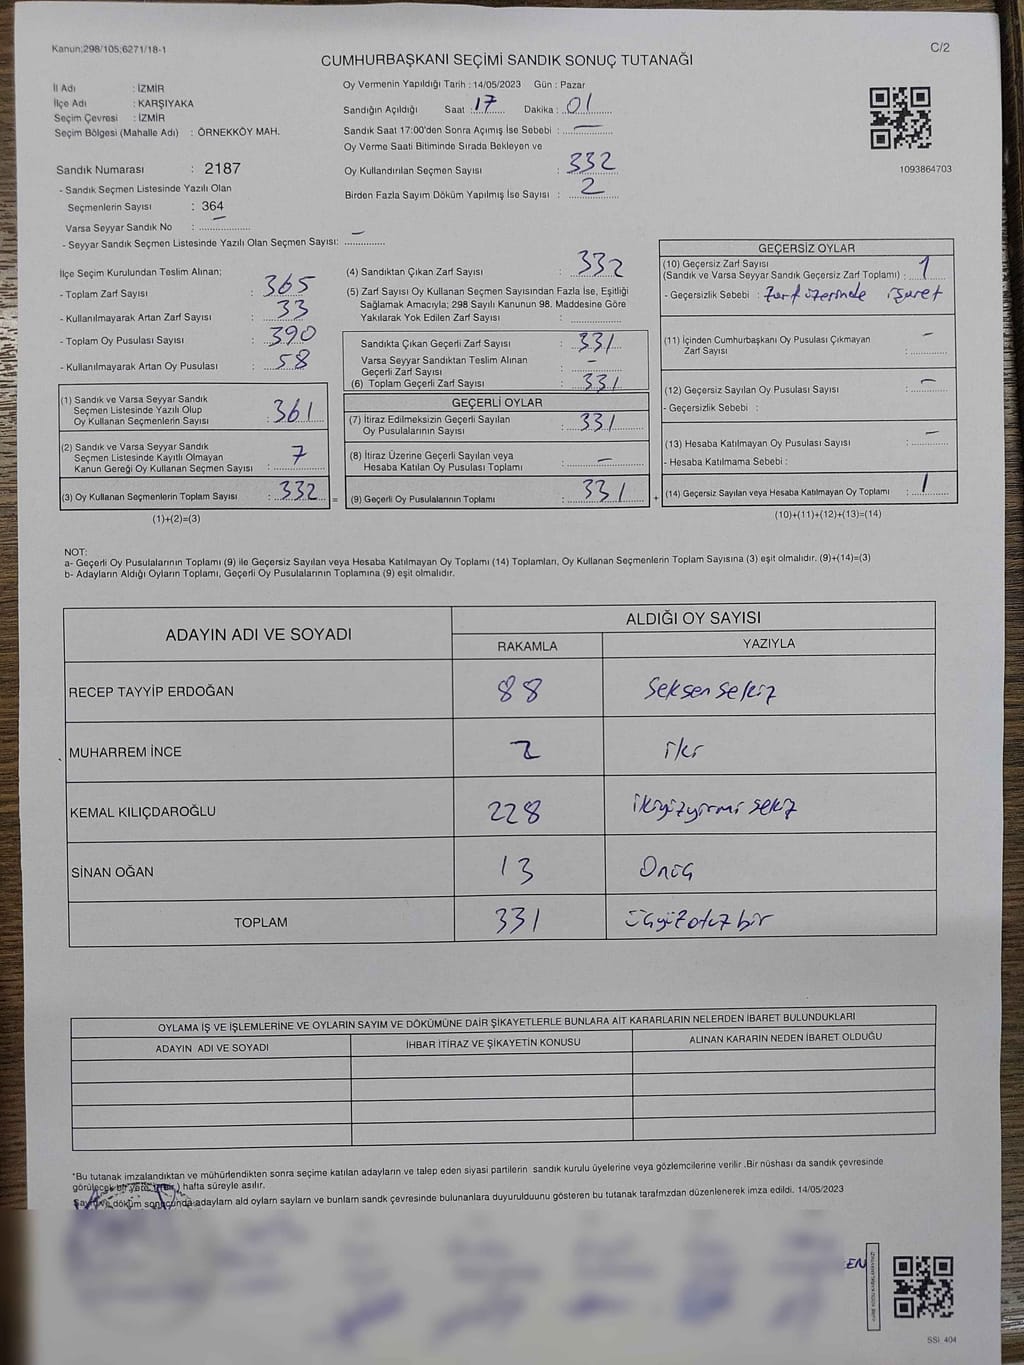 Kanun;298/105;6271/18-1
C/2
CUMHURBAŞKANI SEÇİMİ SANDIK SONUÇ TUTANAĞI
İl Adı : İZMİR
İlçe Adı : KARŞIYAKA
Seçim Çevresi : İZMİR
Seçim Bölgesi (Mahalle Adı) : ÖRNEKKÖY MAH.
Oy Vermenin Yapıldığı Tarih : 14/05/2023 Gün : Pazar
Sandığın Açıldığı Saat : 17 Dakika : 01
Sandık Saat 17:00'den Sonra Açımış İse Sebebi : —
Oy Verme Saati Bitiminde Sırada Bekleyen ve
Oy Kullandırılan Seçmen Sayısı : 332
Birden Fazla Sayım Döküm Yapılmış İse Sayısı : 2
1093864703
Sandık Numarası : 2187
- Sandık Seçmen Listesinde Yazılı Olan
Seçmenlerin Sayısı : 364
Varsa Seyyar Sandık No : —
- Seyyar Sandık Seçmen Listesinde Yazılı Olan Seçmen Sayısı: —
İlçe Seçim Kurulundan Teslim Alınan;
- Toplam Zarf Sayısı : 365
- Kullanılmayarak Artan Zarf Sayısı : 33
- Toplam Oy Pusulası Sayısı : 390
- Kullanılmayarak Artan Oy Pusulası : 58
(1) Sandık ve Varsa Seyyar Sandık
Seçmen Listesinde Yazılı Olup
Oy Kullanan Seçmenlerin Sayısı : 361
(2) Sandık ve Varsa Seyyar Sandık
Seçmen Listesinde Kayıtlı Olmayan
Kanun Gereği Oy Kullanan Seçmen Sayısı : 7
(3) Oy Kullanan Seçmenlerin Toplam Sayısı : 332 =
(1)+(2)=(3)
(4) Sandıktan Çıkan Zarf Sayısı : 332
(5) Zarf Sayısı Oy Kullanan Seçmen Sayısından Fazla İse, Eşitliği
Sağlamak Amacıyla; 298 Sayılı Kanunun 98. Maddesine Göre
Yakılarak Yok Edilen Zarf Sayısı :
Sandıkta Çıkan Geçerli Zarf Sayısı : 331
Varsa Seyyar Sandıktan Teslim Alınan
Geçerli Zarf Sayısı : —
(6) Toplam Geçerli Zarf Sayısı : 331
GEÇERLİ OYLAR
(7) İtiraz Edilmeksizin Geçerli Sayılan
Oy Pusulalarının Sayısı : 331
(8) İtiraz Üzerine Geçerli Sayılan veya
Hesaba Katılan Oy Pusulası Toplamı : —
(9) Geçerli Oy Pusulalarının Toplamı : 331 +
GEÇERSİZ OYLAR
(10) Geçersiz Zarf Sayısı
(Sandık ve Varsa Seyyar Sandık Geçersiz Zarf Toplamı) : 1
- Geçersizlik Sebebi : Zarf üzerinde işaret
(11) İçinden Cumhurbaşkanı Oy Pusulası Çıkmayan
Zarf Sayısı : —
(12) Geçersiz Sayılan Oy Pusulası Sayısı : —
- Geçersizlik Sebebi :
(13) Hesaba Katılmayan Oy Pusulası Sayısı : —
- Hesaba Katılmama Sebebi :
(14) Geçersiz Sayılan veya Hesaba Katılmayan Oy Toplamı : 1
(10)+(11)+(12)+(13)=(14)
NOT:
a- Geçerli Oy Pusulalarının Toplamı (9) ile Geçersiz Sayılan veya Hesaba Katılmayan Oy Toplamı (14) Toplamları, Oy Kullanan Seçmenlerin Toplam Sayısına (3) eşit olmalıdır. (9)+(14)=(3)
b- Adayların Aldığı Oyların Toplamı, Geçerli Oy Pusulalarının Toplamına (9) eşit olmalıdır.
ADAYIN ADI VE SOYADI
ALDIĞI OY SAYISI
RAKAMLA YAZIYLA
RECEP TAYYİP ERDOĞAN 88 Seksen sekiz
MUHARREM İNCE 2 iki
KEMAL KILIÇDAROĞLU 228 ikiyüzyirmi sekiz
SİNAN OĞAN 13 Onüç
TOPLAM 331 üçyüz otuz bir
OYLAMA İŞ VE İŞLEMLERİNE VE OYLARIN SAYIM VE DÖKÜMÜNE DAİR ŞİKAYETLERLE BUNLARA AİT KARARLARIN NELERDEN İBARET BULUNDUKLARI
ADAYIN ADI VE SOYADI İHBAR İTİRAZ VE ŞİKAYETİN KONUSU ALINAN KARARIN NEDEN İBARET OLDUĞU
*Bu tutanak imzalandıktan ve mühürlendikten sonra seçime katılan adayların ve talep eden siyasi partilerin sandık kurulu üyelerine veya gözlemcilerine verilir .Bir nüshası da sandık çevresinde
görülecek bir yere (bir) hafta süreyle asılır.
Sayım ve döküm sonucunda adaylarn ald oylarn saylarn ve bunlarn sandk çevresinde bulunanlara duyurulduunu gösteren bu tutanak tarafmzdan düzenlenerek imza edildi. 14/05/2023
EN
SSİ 404